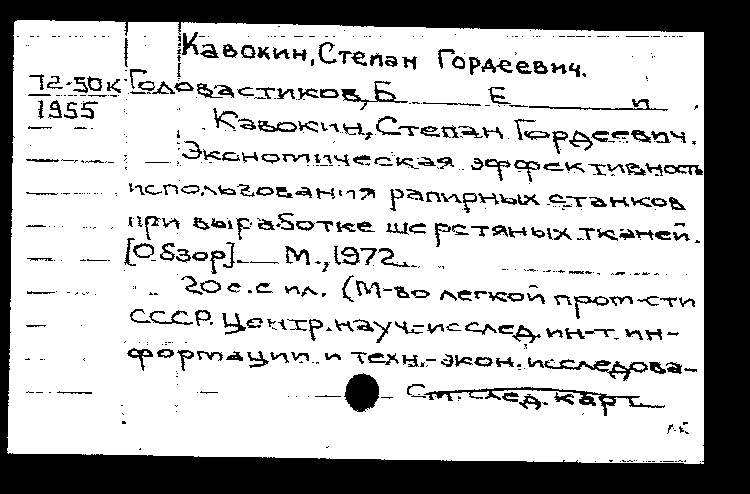 Кавокин, Степан Гордеевич.
72-50к Головастиков, Б Е и
1955
Кавокин, Степан Гордеевич.
Экономическая эффективность
использования рапирных станков
при выработке шерстяных тканей.
[Обзор]. М., 1972.
20 с. с ил. (М-во легкой пром-сти
СССР. Центр. науч-исслед. ин-т. ин-
формации и техн.-экон. исследова-
См. след. карт.